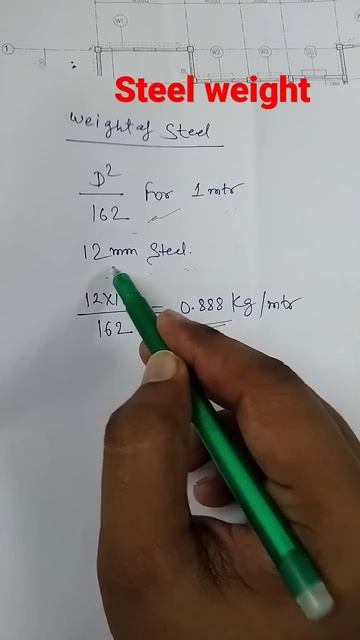 W1
1
W2
W3
Steel weight
Weight of Steel
D²
162
For 1 mtr
12mm Steel.
12X1 = 0.888 Kg/mtr
162